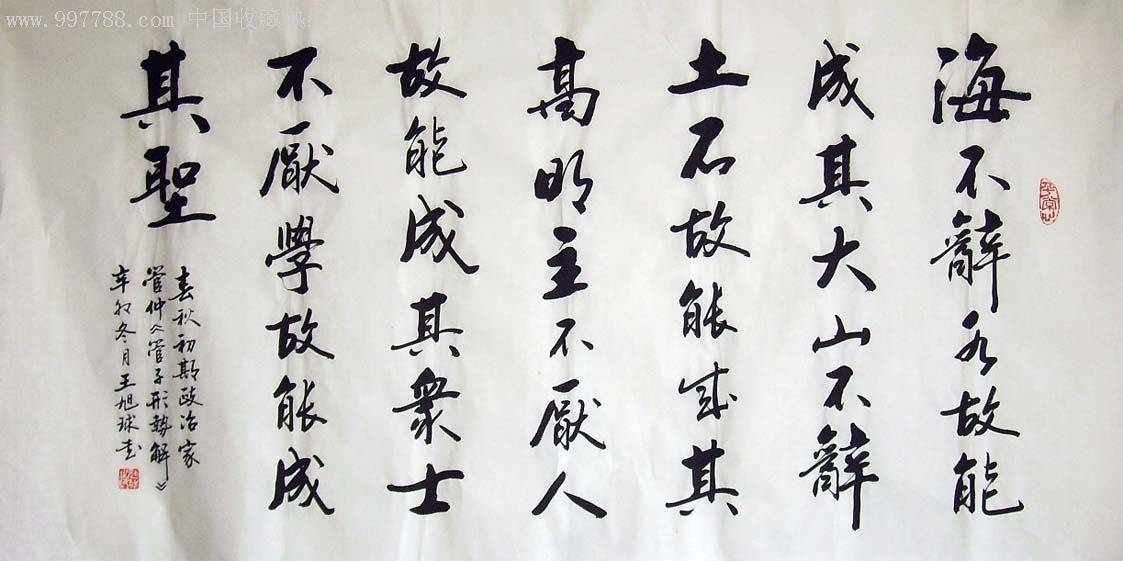 海不辭水故能
成其大山不辭
土石故能成其
高明主不厭人
故能成其衆士
不厭學故能成
其聖
春秋初期政治家
管仲《管子形勢解》
辛卯冬月王旭球书
www.997788.com 中国收藏热线